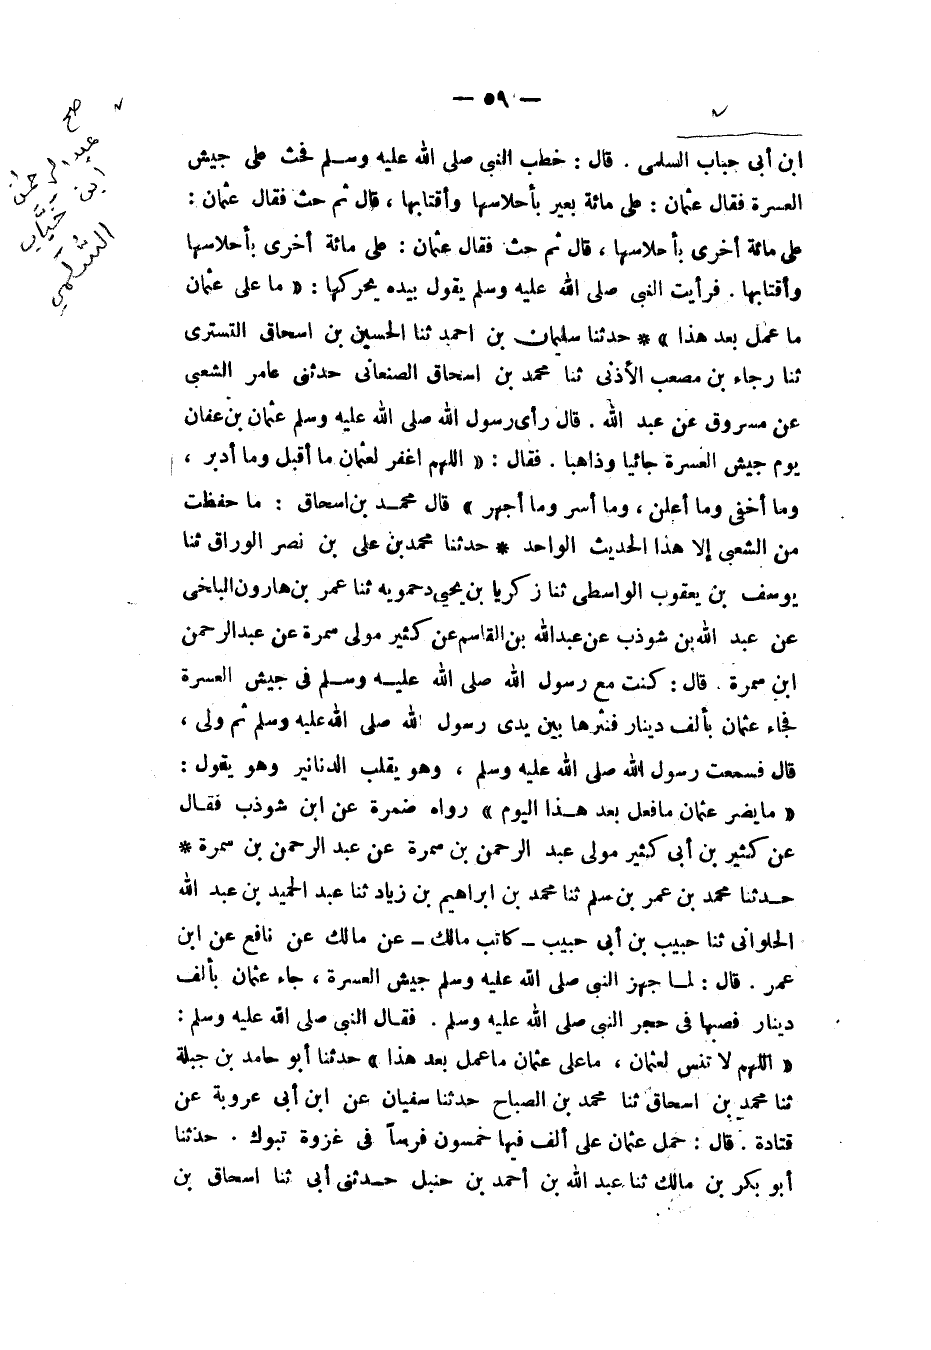 — ٥٩ —
ابن أبى حباب السلمى . قال : خطب النبى صلى الله عليه وسلم فحث على جيش
العسرة فقال عثمان : على مائة بعير بأحلاسها وأقتابها ، قال ثم حث فقال عثمان :
على مائة أخرى بأحلاسها ، قال ثم حث فقال عثمان : على مائة أخرى بأحلاسها
وأقتابها . فرأيت النبى صلى الله عليه وسلم يقول بيده يحركها : « ما على عثمان
ما عمل بعد هذا » * حدثنا سليمان بن احمد ثنا الحسين بن اسحاق التسترى
ثنا رجاء بن مصعب الأذنى ثنا محمد بن اسحاق الصنعانى حدثنى عامر الشعبى
عن مسروق عن عبد الله . قال رأى رسول الله صلى الله عليه وسلم عثمان بن عفان
يوم جيش العسرة جائيا وذاهبا . فقال : « اللهم اغفر لعثمان ما أقبل وما أدبر ،
وما أخفى وما أعلن ، وما أسر وما أجهر » قال محمد بن اسحاق : ما حفظت
من الشعبى إلا هذا الحديث الواحد * حدثنا محمد بن على بن نصر الوراق ثنا
يوسف بن يعقوب الواسطى ثنا زكريا بن يحيى دحمويه ثنا عمر بن هارون البلخى
عن عبد الله بن شوذب عن عبدالله بن القاسم عن كثير مولى سمرة عن عبدالرحمن
ابن سمرة . قال : كنت مع رسول الله صلى الله عليه وسلم فى جيش العسرة
فجاء عثمان بألف دينار فنثرها بين يدى رسول الله صلى الله عليه وسلم ثم ولى ،
قال فسمعت رسول الله صلى الله عليه وسلم ، وهو يقلب الدنانير وهو يقول :
« ما يضر عثمان ما فعل بعد هذا اليوم » رواه ضمرة عن ابن شوذب فقال
عن كثير بن أبى كثير مولى عبد الرحمن بن سمرة عن عبد الرحمن بن سمرة *
حدثنا محمد بن عمر بن سلم ثنا محمد بن ابراهيم بن زياد ثنا عبد الحميد بن عبد الله
الحلوانى ثنا حبيب بن أبى حبيب ـ كاتب مالك ـ عن مالك عن نافع عن ابن
عمر . قال : لما جهز النبى صلى الله عليه وسلم جيش العسرة ، جاء عثمان بألف
دينار فصبها فى حجر النبى صلى الله عليه وسلم . فقال النبى صلى الله عليه وسلم :
« اللهم لا تنس لعثمان ، ما على عثمان ما عمل بعد هذا » حدثنا أبو حامد بن جبلة
ثنا محمد بن اسحاق ثنا محمد بن الصباح حدثنا سفيان عن ابن أبى عروبة عن
قتادة . قال : حمل عثمان على ألف فيها خمسون فرساً فى غزوة تبوك . حدثنا
أبو بكر بن مالك ثنا عبد الله بن أحمد بن حنبل حدثنى أبى ثنا اسحاق بن
صح
عبد الرحمن
ابن خبّاب
السُّلَمي